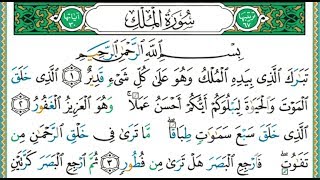 سُورَةُ الْمُلْكِ
بِسْمِ اللَّهِ الرَّحْمَٰنِ الرَّحِيمِ
تَبَارَكَ الَّذِي بِيَدِهِ الْمُلْكُ وَهُوَ عَلَىٰ كُلِّ شَيْءٍ قَدِيرٌ ١ الَّذِي خَلَقَ
الْمَوْتَ وَالْحَيَاةَ لِيَبْلُوَكُمْ أَيُّكُمْ أَحْسَنُ عَمَلًا ۚ وَهُوَ الْعَزِيزُ الْغَفُورُ ٢
الَّذِي خَلَقَ سَبْعَ سَمَاوَاتٍ طِبَاقًا ۖ مَّا تَرَىٰ فِي خَلْقِ الرَّحْمَٰنِ مِن
تَفَاوُتٍ ۖ فَارْجِعِ الْبَصَرَ هَلْ تَرَىٰ مِن فُطُورٍ ٣ ثُمَّ ارْجِعِ الْبَصَرَ كَرَّتَيْنِ